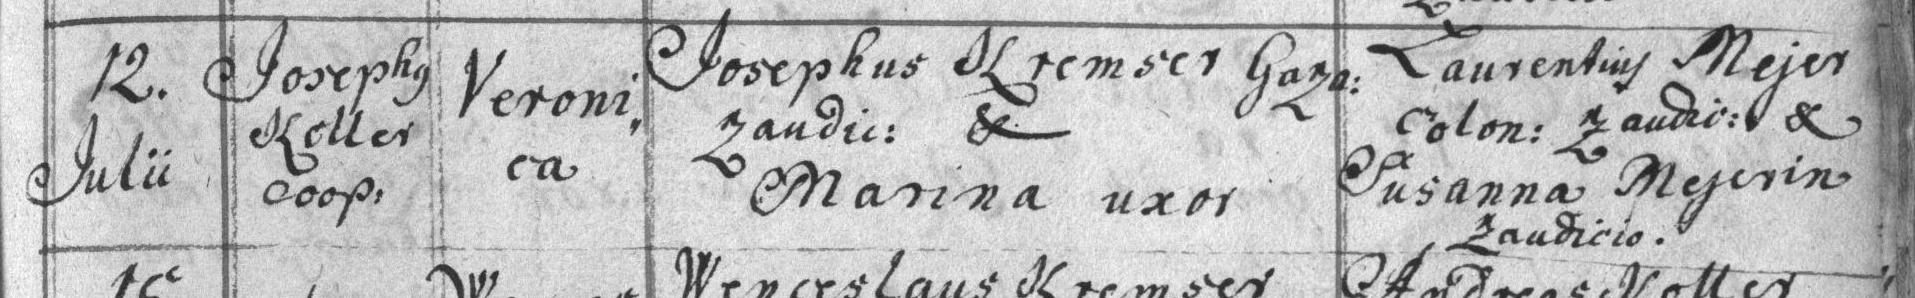 12.
Julii
Josephus
Koller
Coop:
Veroni,
ca
Josephus Kremser Gaza:
Zaudic: &
Marina uxor
Laurentius Mejer
Colon: Zaudic: &
Susanna Mejerin
Zaudicio.
Wenceslaus Kremser
Andreas Koller